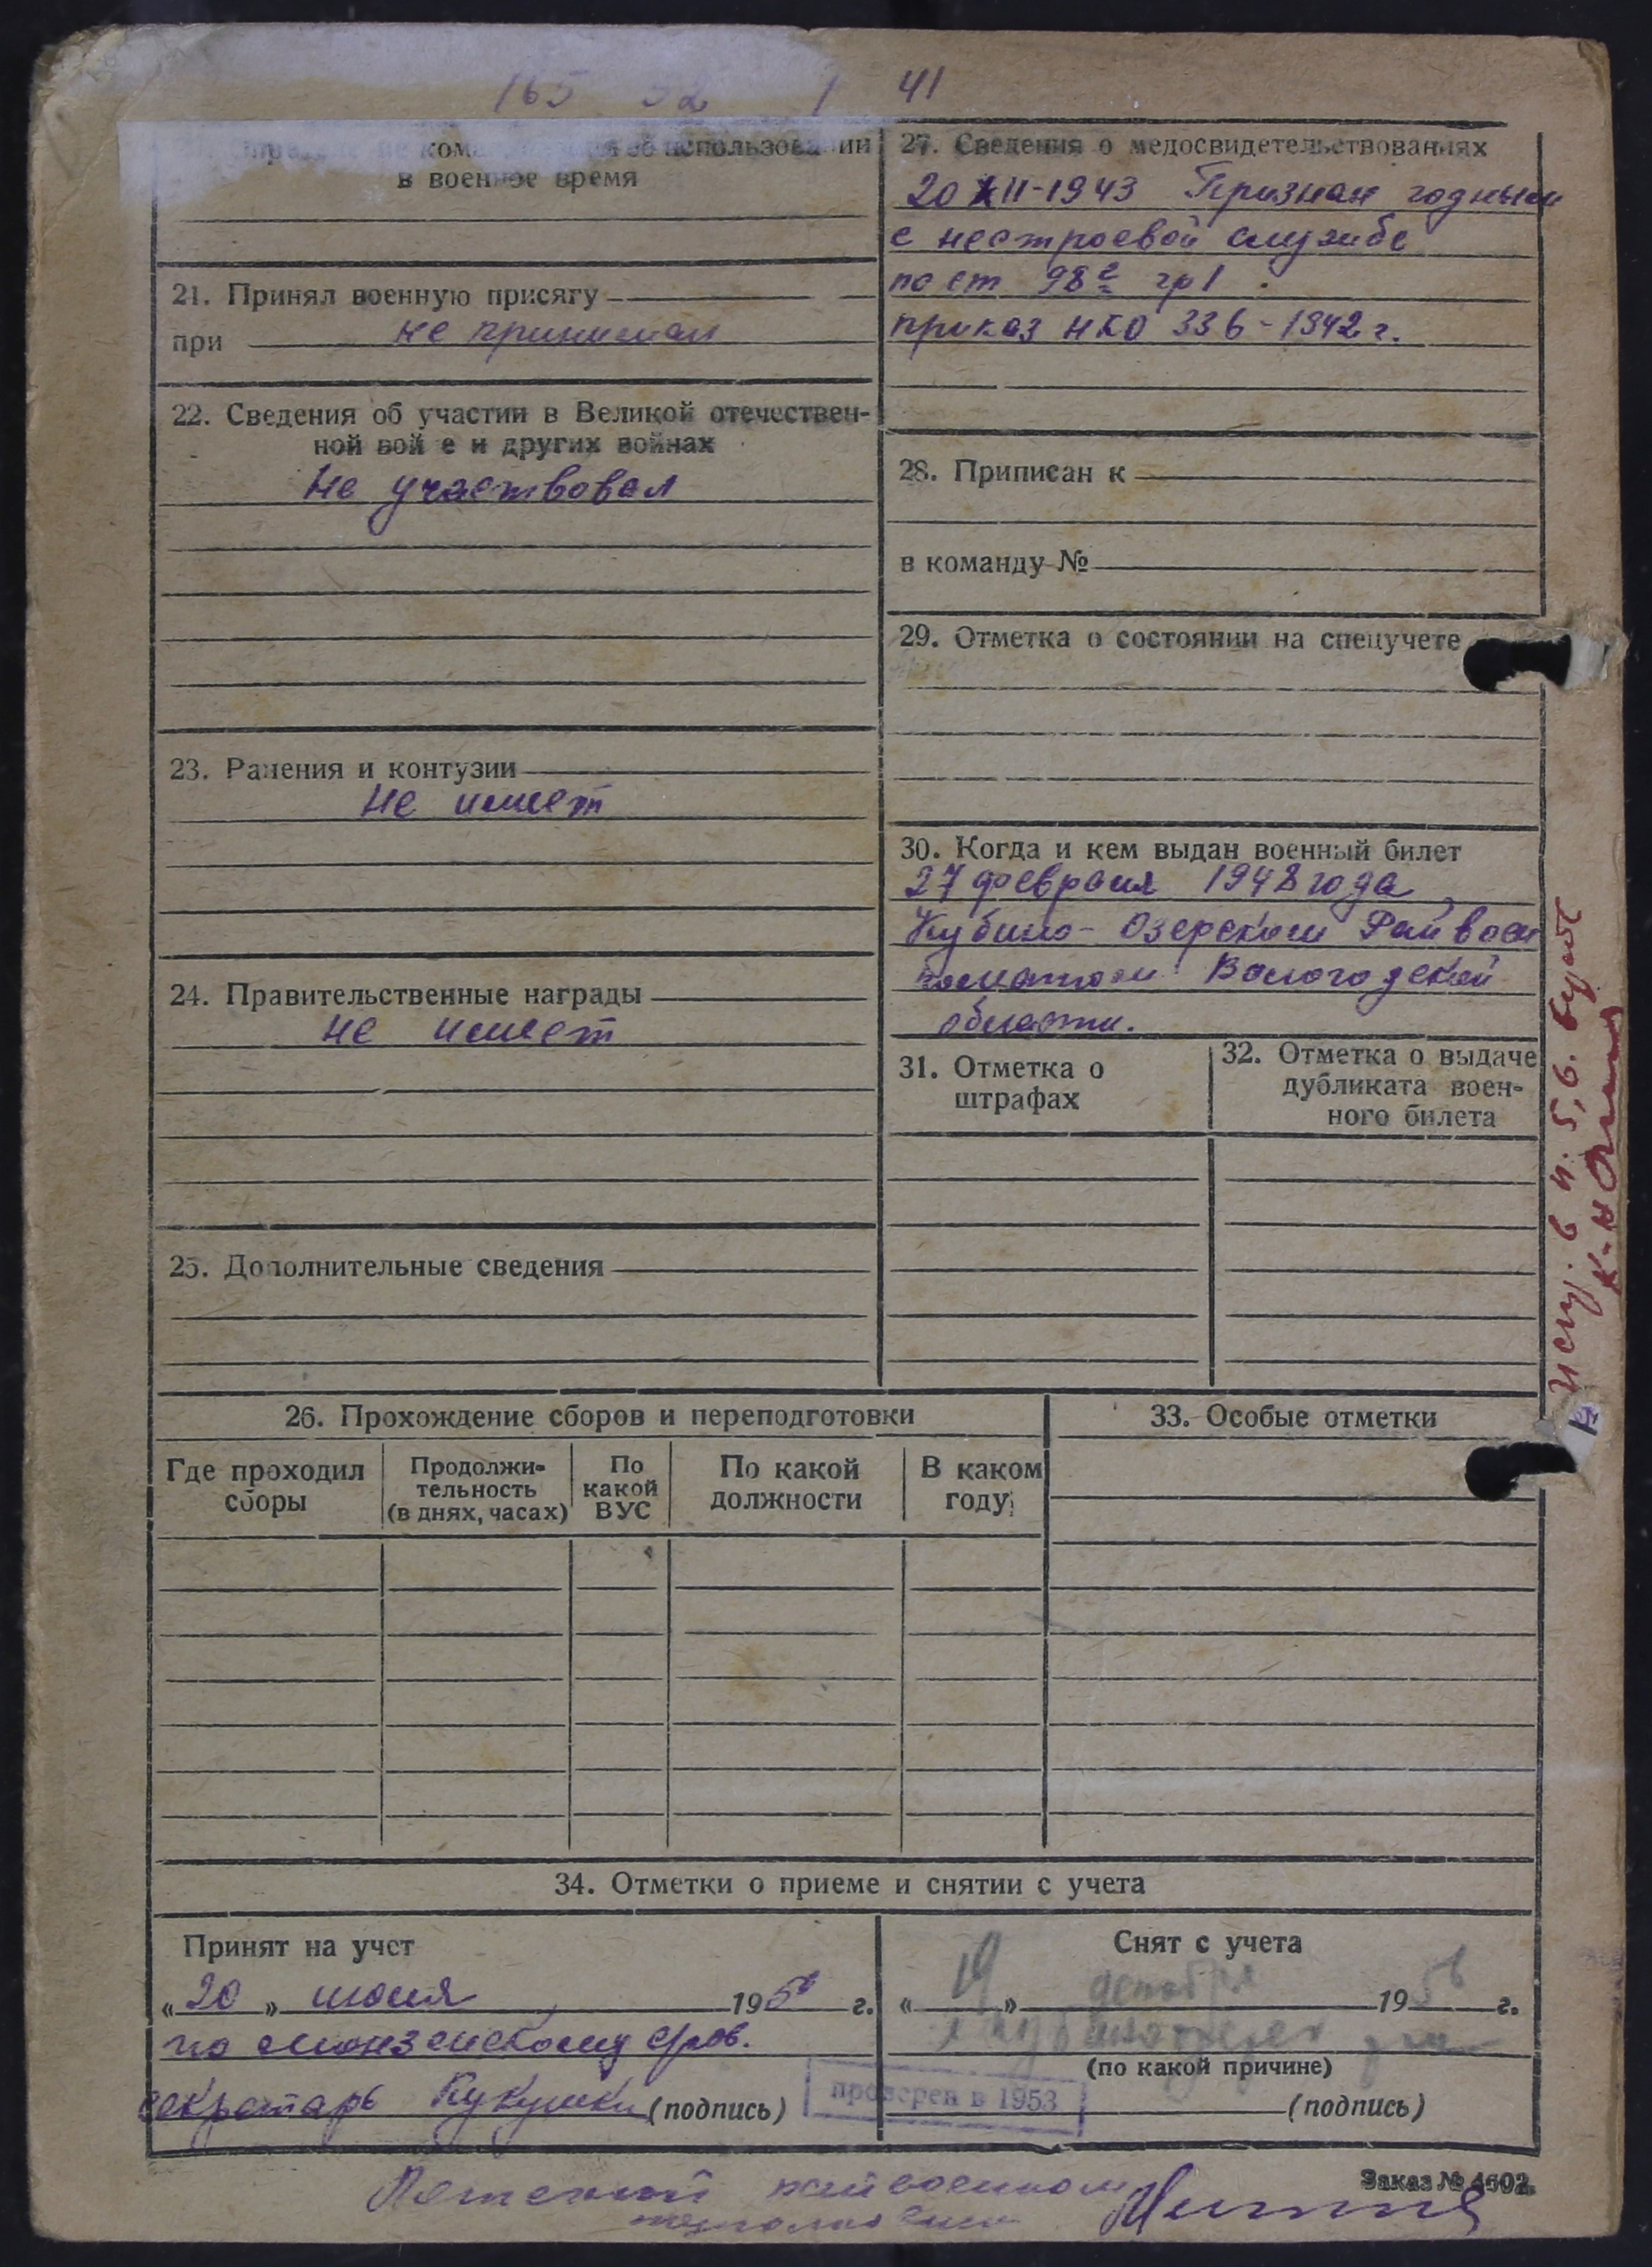 165 52 1 41
кома об использовании
в военное время
21. Принял военную присягу
при не принимал
22. Сведения об участии в Великой отечествен-
ной вой е и других войнах
Не участвовал
23. Ранения и контузии
Не имеет
24. Правительственные награды
не имеет
25. Дополнительные сведения
27. Сведения о медосвидетельствованиях
20 XII-1943 Признан годным
с нестроевой службе
по ст 98г гр 1
приказ НКО 336-1942 г.
28. Приписан к
в команду №
29. Отметка о состоянии на спецучете
30. Когда и кем выдан военный билет
27 февраля 1948 года
Кубино-Озерским Райвоен
коматом Вологодской
области.
31. Отметка о
штрафах
32. Отметка о выдаче
дубликата воен-
ного билета
26. Прохождение сборов и переподготовки
Где проходил
сборы
Продолжи-
тельность
(в днях, часах)
По
какой
ВУС
По какой
должности
В каком
году
33. Особые отметки
34. Отметки о приеме и снятии с учета
Принят на учет
« 20 » июля 1950 г.
по
секретарь Кукушки (подпись)
Снят с учета
« 19 » декабря 1956 г.
(по какой причине)
(подпись)
проверен в 1953
Заказ № 4602.
райвоенком
в п. 5, 6.